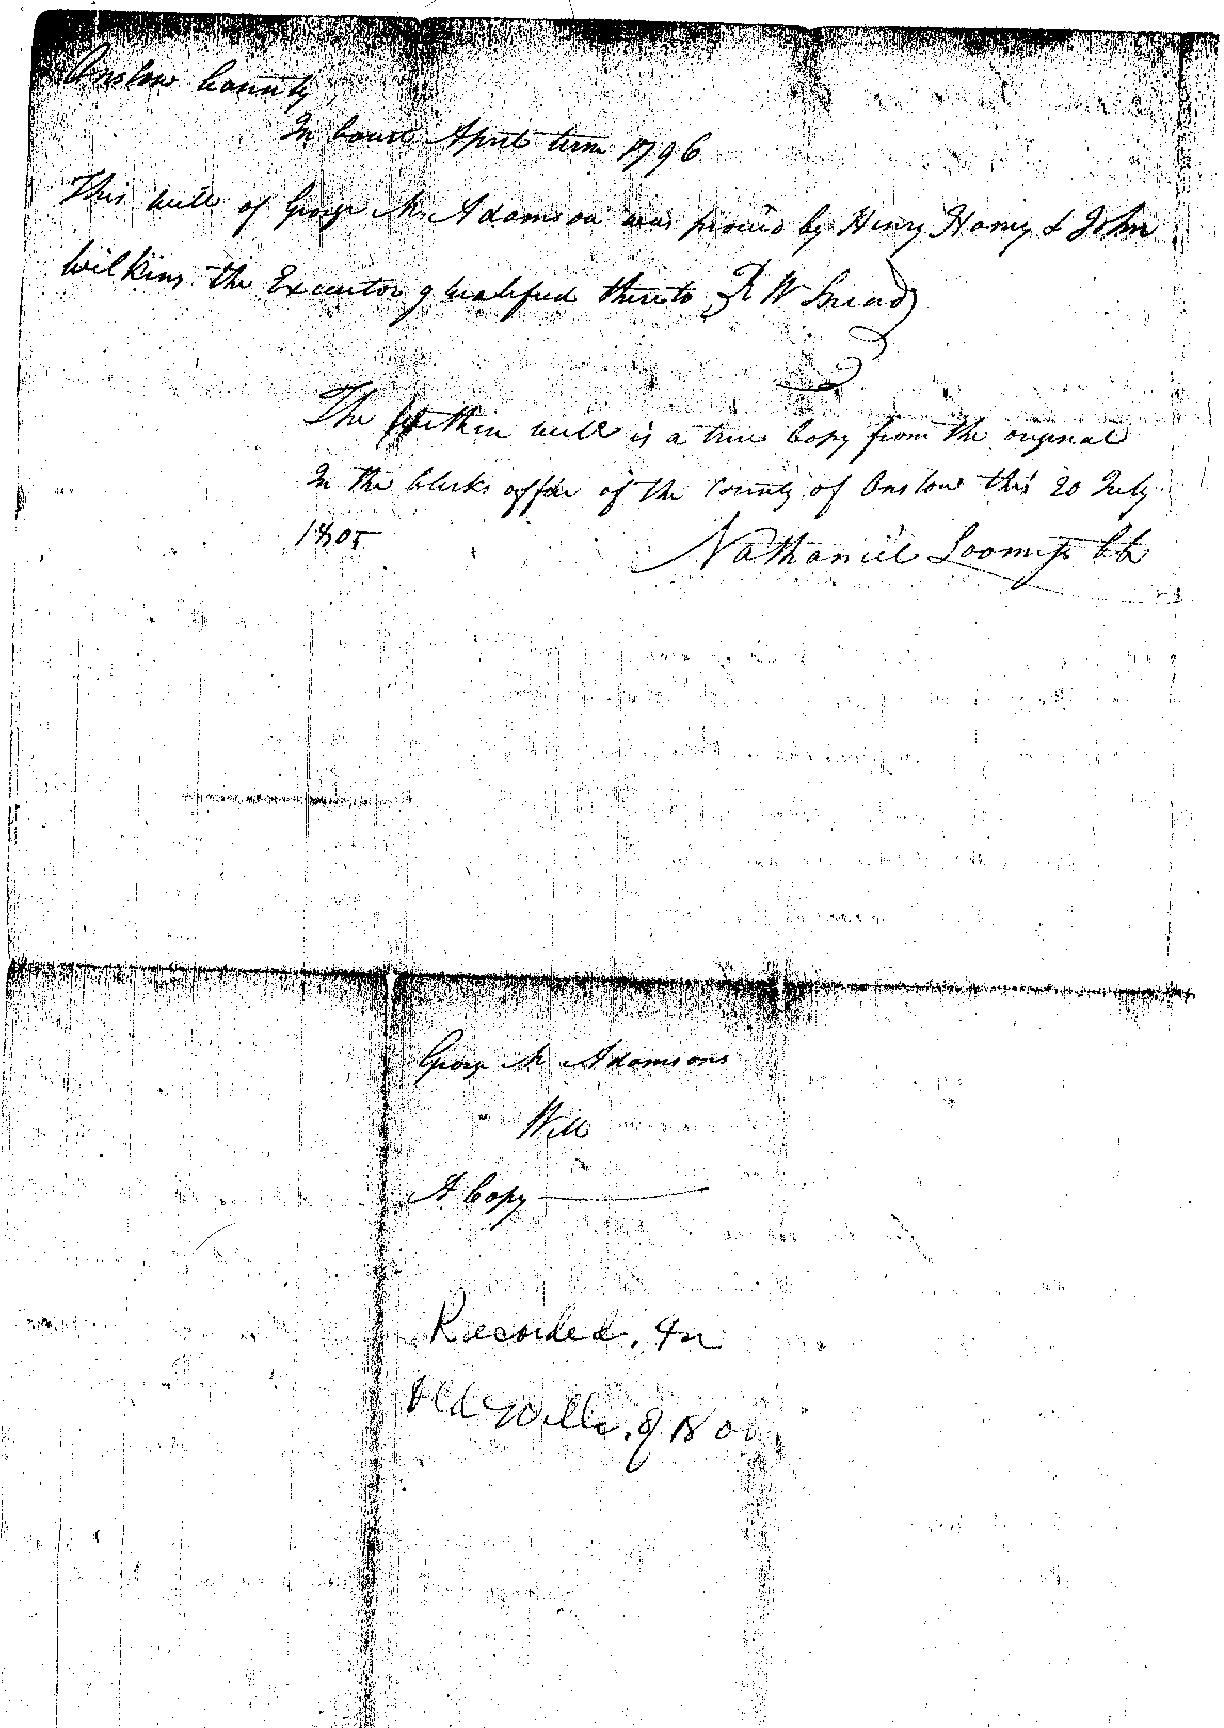 Onslow County
In Court April term 1796
This will of George M. Adamson was proved by Henry Horny & John
Wilkins the Executor qualified thereto R W Snead
The within will is a true Copy from the original
In the Clerks office of the County of Onslow this 20 July
1805 Nathaniel Loomis Ck
George M Adamsons
Will
A Copy
Recorded, In
Old Wills, of 1800